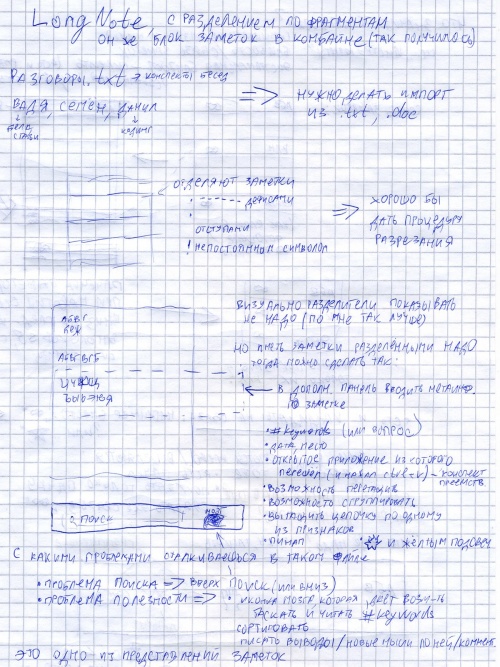 LongNote, с разделением по фрагментам
он же блок заметок в комбайне (так получилось)
Разговоры.txt → конспекты бесед
Вадя, семён, данил
кодинг
⇒ нужно делать импорт
из .txt, .doc
отделяют заметки
• ------- дефисами
• отступами
! непостоянным символом
⇒ хорошо бы
дать процедуру
разрезания
Визуально разделители показывать
не надо (по мне так лучше)
но иметь заметки разделёнными надо
тогда можно сделать так:
АБВГ
АБВГ
ЦЧШЩ
ЪЫЬЭЮЯ
← в дополн. панель вводить метаинф.
по заметке
• #keywords (или вопрос)
• дата, место
• открытое приложение из которого
перешёл (и нажал ctrl-v) – конспект
• возможность перетащить
• возможность сгруппировать
• вытащить цепочку по одному
из признаков
• пинап
и жёлтым подсвеч
поиск
мозг
С какими проблемами сталкиваешься в таком файле
• проблема поиска ⇒ вверх поиск (или вниз)
• проблема полезности ⇒ • иконка мозга, которая даёт возм-ть
таскать и читать #keywords
сортировать
писать выводы/новые мысли по ней/коммент.
это одно из представлений заметок